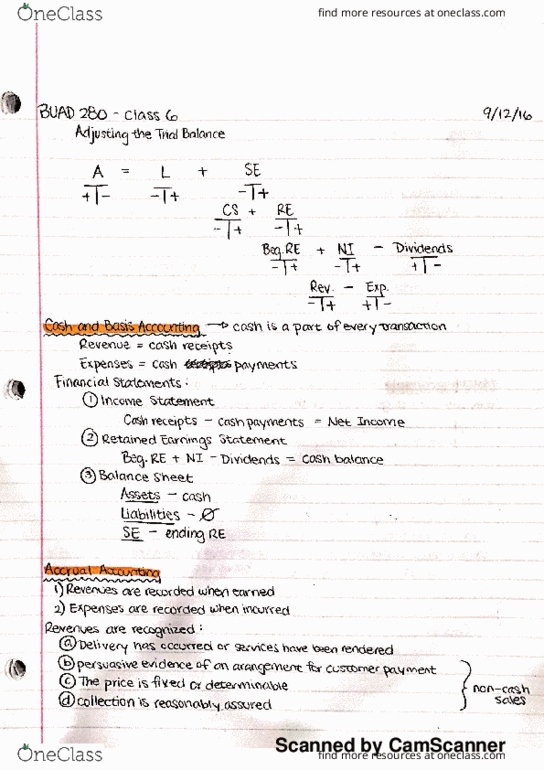 OneClass find more resources at oneclass.com
BUAD 280 - Class 6 9/12/16
Adjusting the Trial Balance
A = L + SE
+T- -T+ -T+
CS + RE
-T+ -T+
Beg. RE + NI - Dividends
-T+ -T+ +T-
Rev. - Exp.
-T+ +T-
Cash and Basis Accounting → cash is a part of every transaction
Revenue = cash receipts
Expenses = cash receipts payments
Financial Statements:
① Income Statement
Cash receipts - cash payments = Net Income
② Retained Earnings Statement
Beg. RE + NI - Dividends = cash balance
③ Balance Sheet
Assets - cash
Liabilities - Ø
SE - ending RE
Accrual Accounting
1) Revenues are recorded when earned
2) Expenses are recorded when incurred
Revenues are recognized:
ⓐ Delivery has occurred or services have been rendered
ⓑ persuasive evidence of an arangement for customer payment
ⓒ The price is fixed or determinable
ⓓ collection is reasonably assured
non-cash
sales
Scanned by CamScanner
OneClass find more resources at oneclass.com